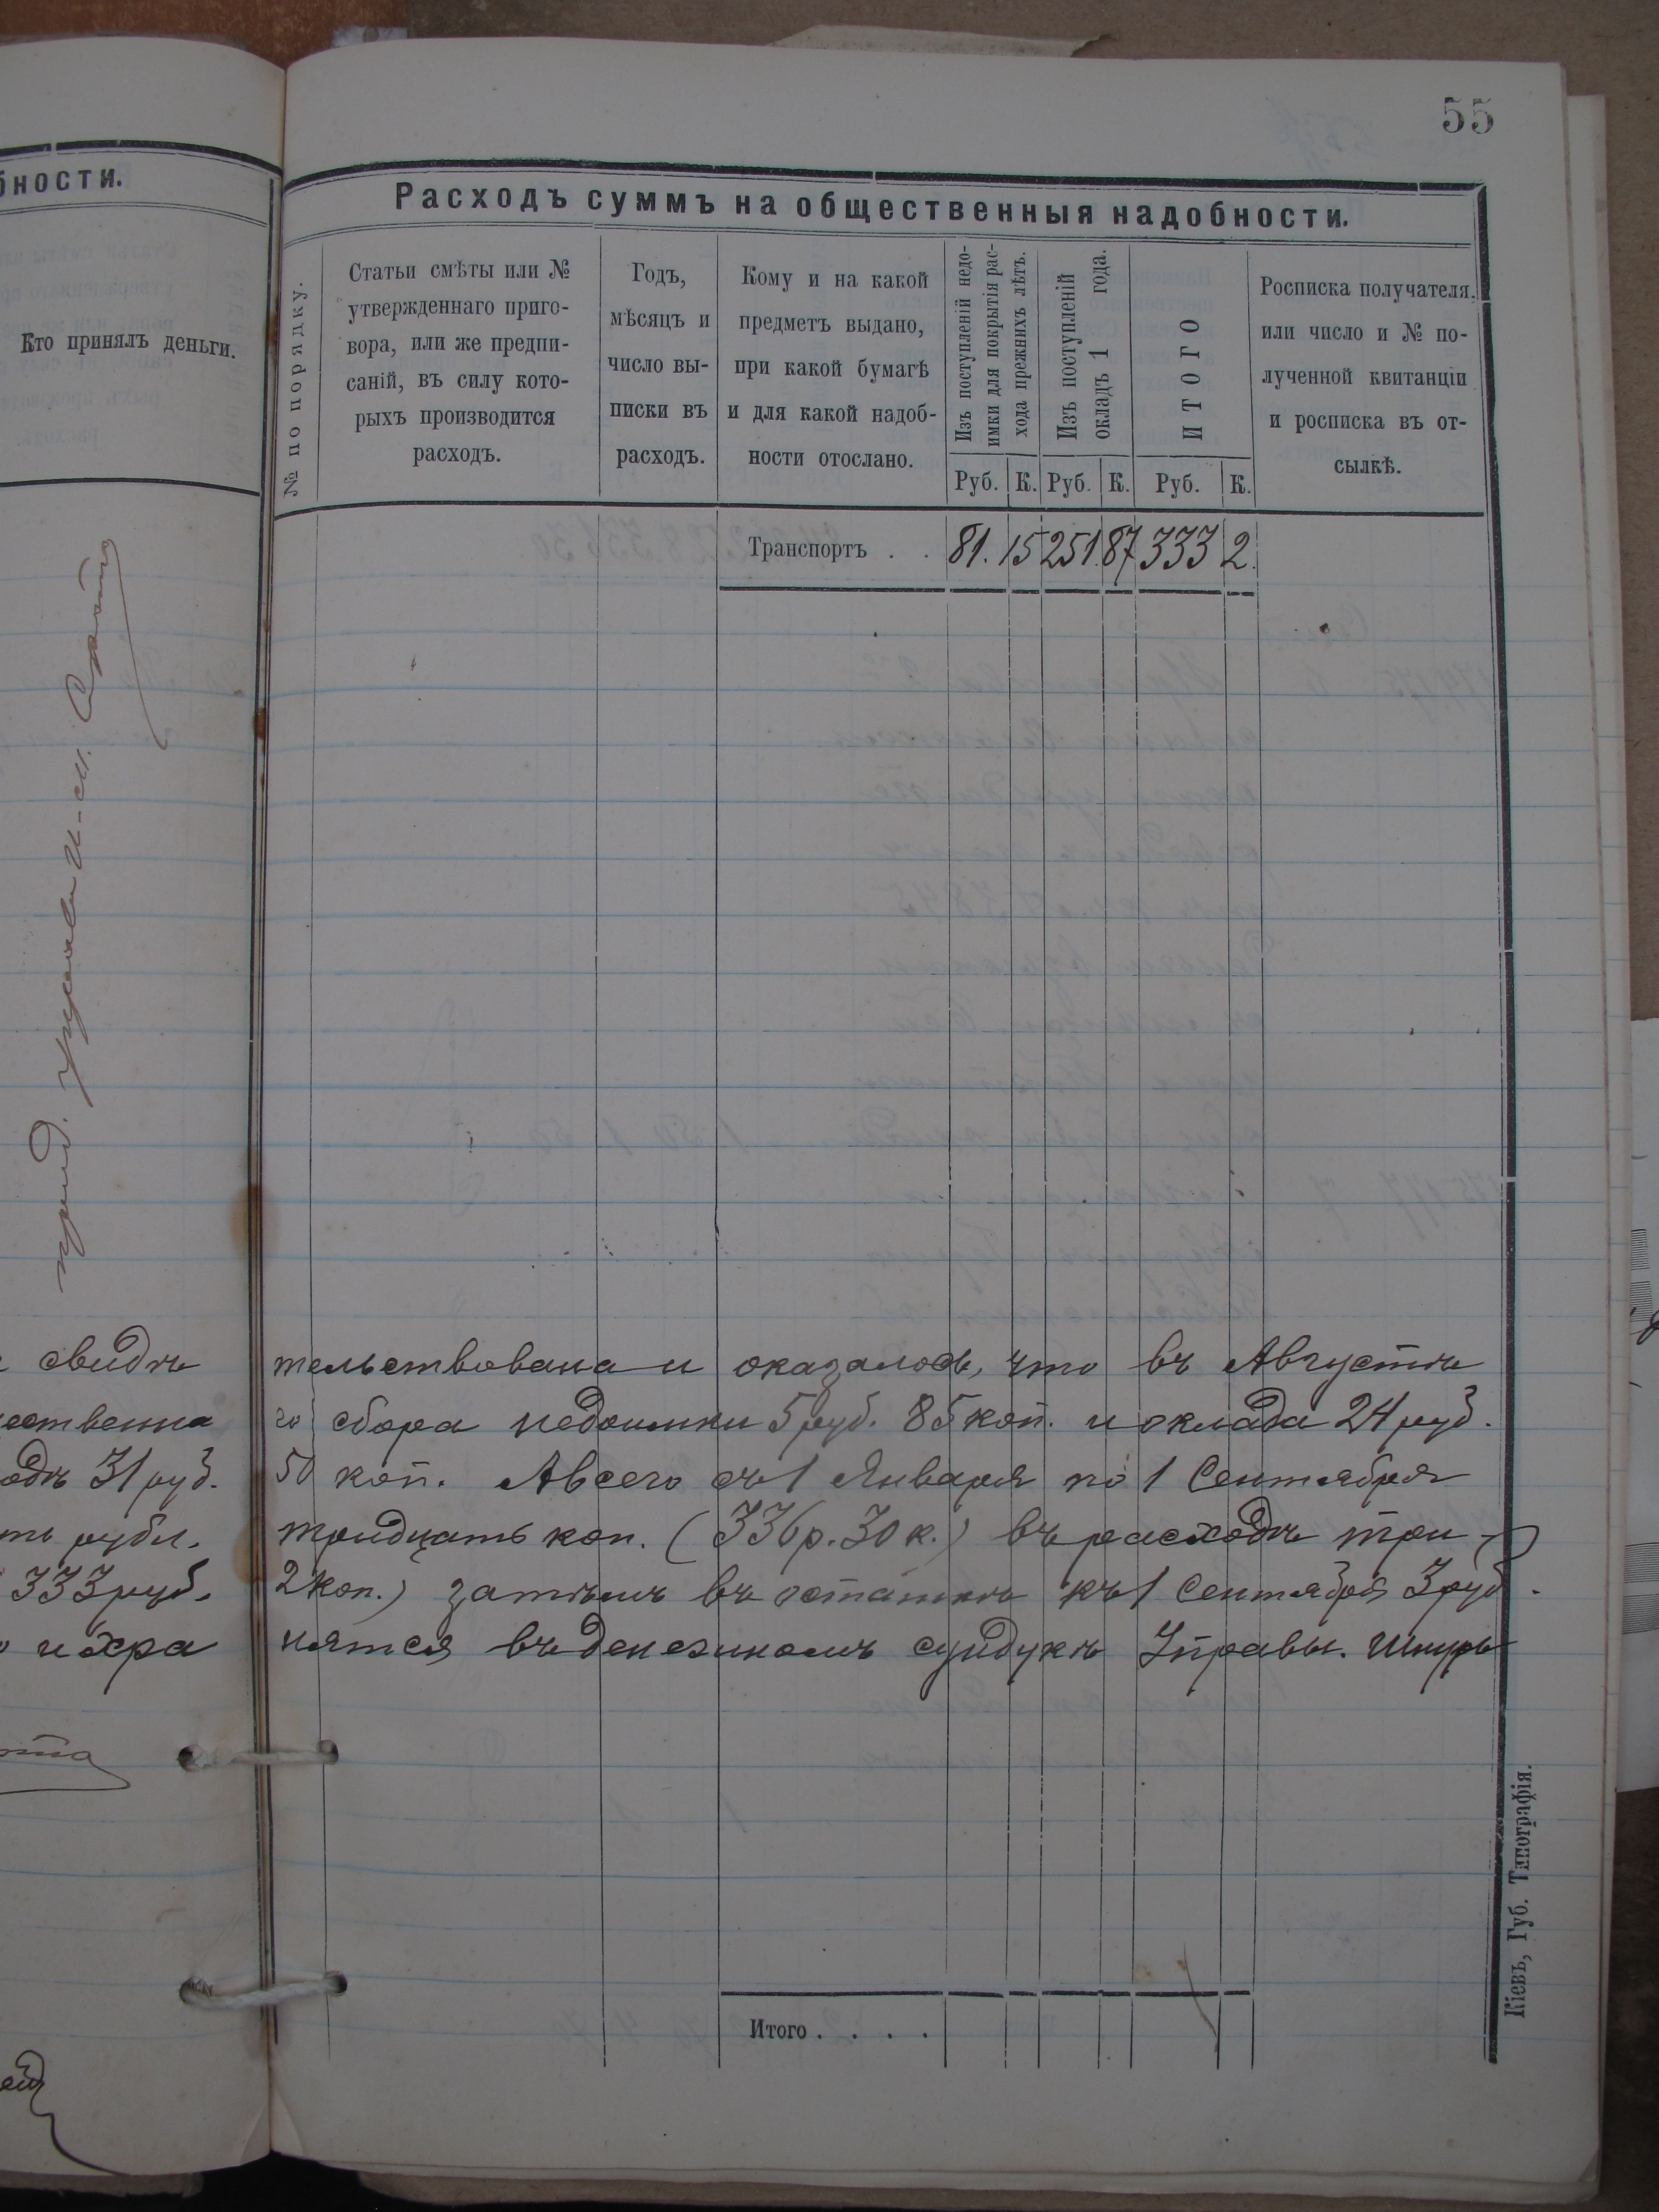 55
бности.
Кто принялъ деньги.
Расходъ суммъ на общественныя надобности.
№ по порядку.
Статьи смѣты или №
утвержденнаго приго-
вора, или же предпи-
саній, въ силу кото-
рыхъ производится
расходъ.
Годъ,
мѣсяцъ и
число вы-
писки въ
расходъ.
Кому и на какой
предметъ выдано,
при какой бумагѣ
и для какой надоб-
ности отослано.
Изъ поступленій недо-
имки для покрытія рас-
хода прежнихъ лѣтъ.
Изъ поступленій
окладъ 1 года.
ИТОГО
Руб. К. Руб. К. Руб. К.
Росписка получателя,
или число и № по-
лученной квитанціи
и росписка въ от-
сылкѣ.
Транспортъ . . 81. 15 251. 87 333 2.
свидѣтельствована и оказалось, что въ Августѣ
ественнаго сбора недоимки 5 руб. 85 коп. и оклада 24 руб.
одѣ 31 руб. 50 коп. А всего съ 1 Января по 1 Сентября
ть рубл. тридцать коп. (336 р. 30 к.) въ расходѣ три-
333 руб. 2 коп.) затѣмъ въ остаткѣ къ 1 Сентября 3 руб.
и хранятся въ денежномъ сундукѣ Управы. Шнуръ
Итого . . . .
Кіевъ, Губ. Типографія.